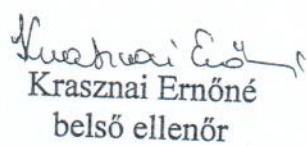 Krasznai Ernőné
Krasznai Ernőné
belső ellenőr